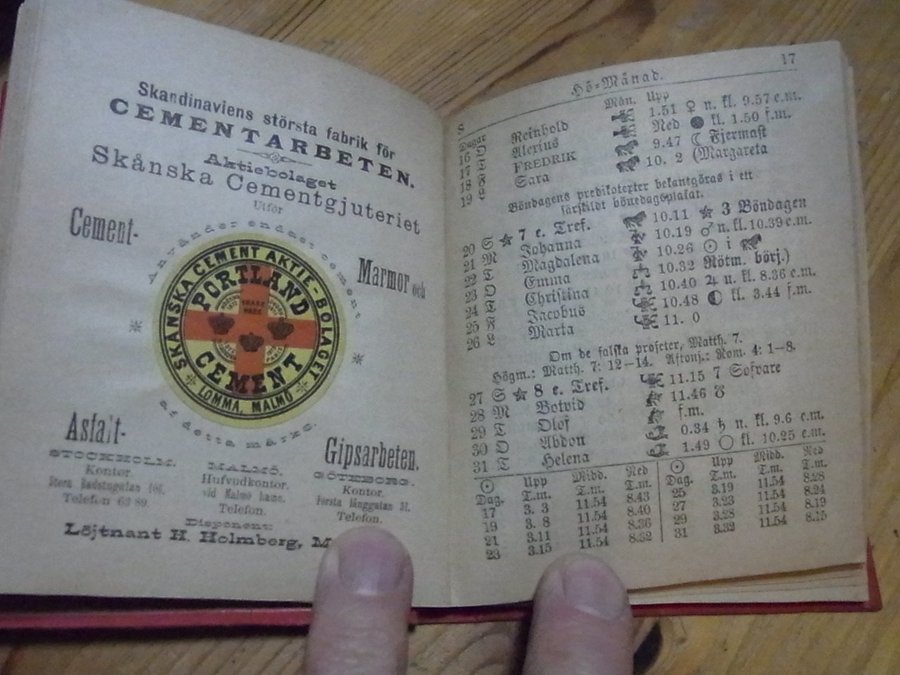 Skandinaviens största fabrik för
CEMENTARBETEN.
Aktiebolaget
Skånska Cementgjuteriet
Utför
Cement-
Marmor och
Använder endast cement
SKÅNSKA CEMENT AKTIE-BOLAGET
PORTLAND
CEMENT
LOMMA, MALMÖ
af detta märke.
Asfalt-
Gipsarbeten.
STOCKHOLM.
Kontor.
Telefon 63 89.
MALMÖ.
Hufvudkontor.
vid Malmö
Telefon.
GÖTEBORG.
Kontor.
Första långgatan
Telefon.
Disponent:
Löjtnant H. Holmberg,
17
Hö-Månad.
Dagar Mån. Upp
16 O Reinhold 1.51 ♀ n. kl. 9.57 e.m.
17 T Alexius Ned ● kl. 1.50 f.m.
18 F FREDRIK 9.47 ☾ Fjermast
19 L Sara 10. 2 (Margareta
Böndagens predikotexter bekantgöras i ett
särskildt bönedagsplakat.
20 S ★ 7 e. Tref. 10.11 ★ 3 Böndagen
21 M Johanna 10.19 ♂ n. kl. 10.39 e.m.
22 T Magdalena 10.26 ☉ i
23 O Emma 10.32 Rötm. börj.)
24 T Christina 10.40 ♃ n. kl. 8.36 e.m.
25 F Jacobus 10.48 ◐ kl. 3.44 f.m.
26 L Marta 11. 0
Om de falska profeter, Matth. 7.
Högm.: Matth. 7: 12-14. Aftonj.: Rom. 4: 1-8.
27 S ★ 8 e. Tref. 11.15 7 Sofvare
28 M Botvid 11.46 ☋
29 T Olof f.m.
30 O Abdon 0.34 ♄ n. kl. 9.6 e.m.
31 T Helena 1.49 ○ kl. 10.25 e.m.
☉ Upp Midd. Ned ☉ Upp Midd. Ned
Dag. T.m. T.m. T.m. Dag. T.m. T.m. T.m.
17 3. 3 11.54 8.43 25 3.19 11.54 8.28
19 3. 8 11.54 8.40 27 3.23 11.54 8.24
21 3.11 11.54 8.36 29 3.28 11.54 8.19
23 3.15 11.54 8.32 31 3.32 11.54 8.15